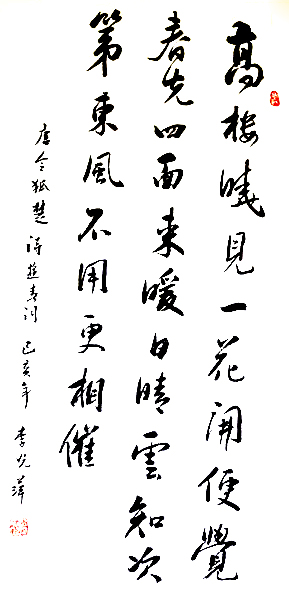 高楼曉見一花開便覺
春光四面来暖日晴雲知次
第東風不用更相催
唐令狐楚詩遊春詞己亥年李光萍